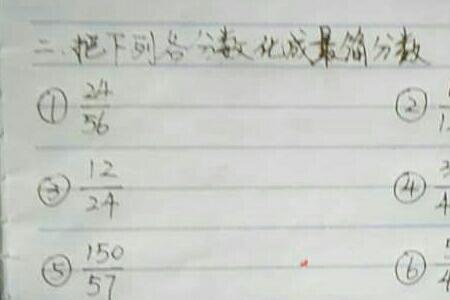 二、把下列各分数化成最简分数
① 24/56 ②
③ 12/24 ④
⑤ 150/57 ⑥